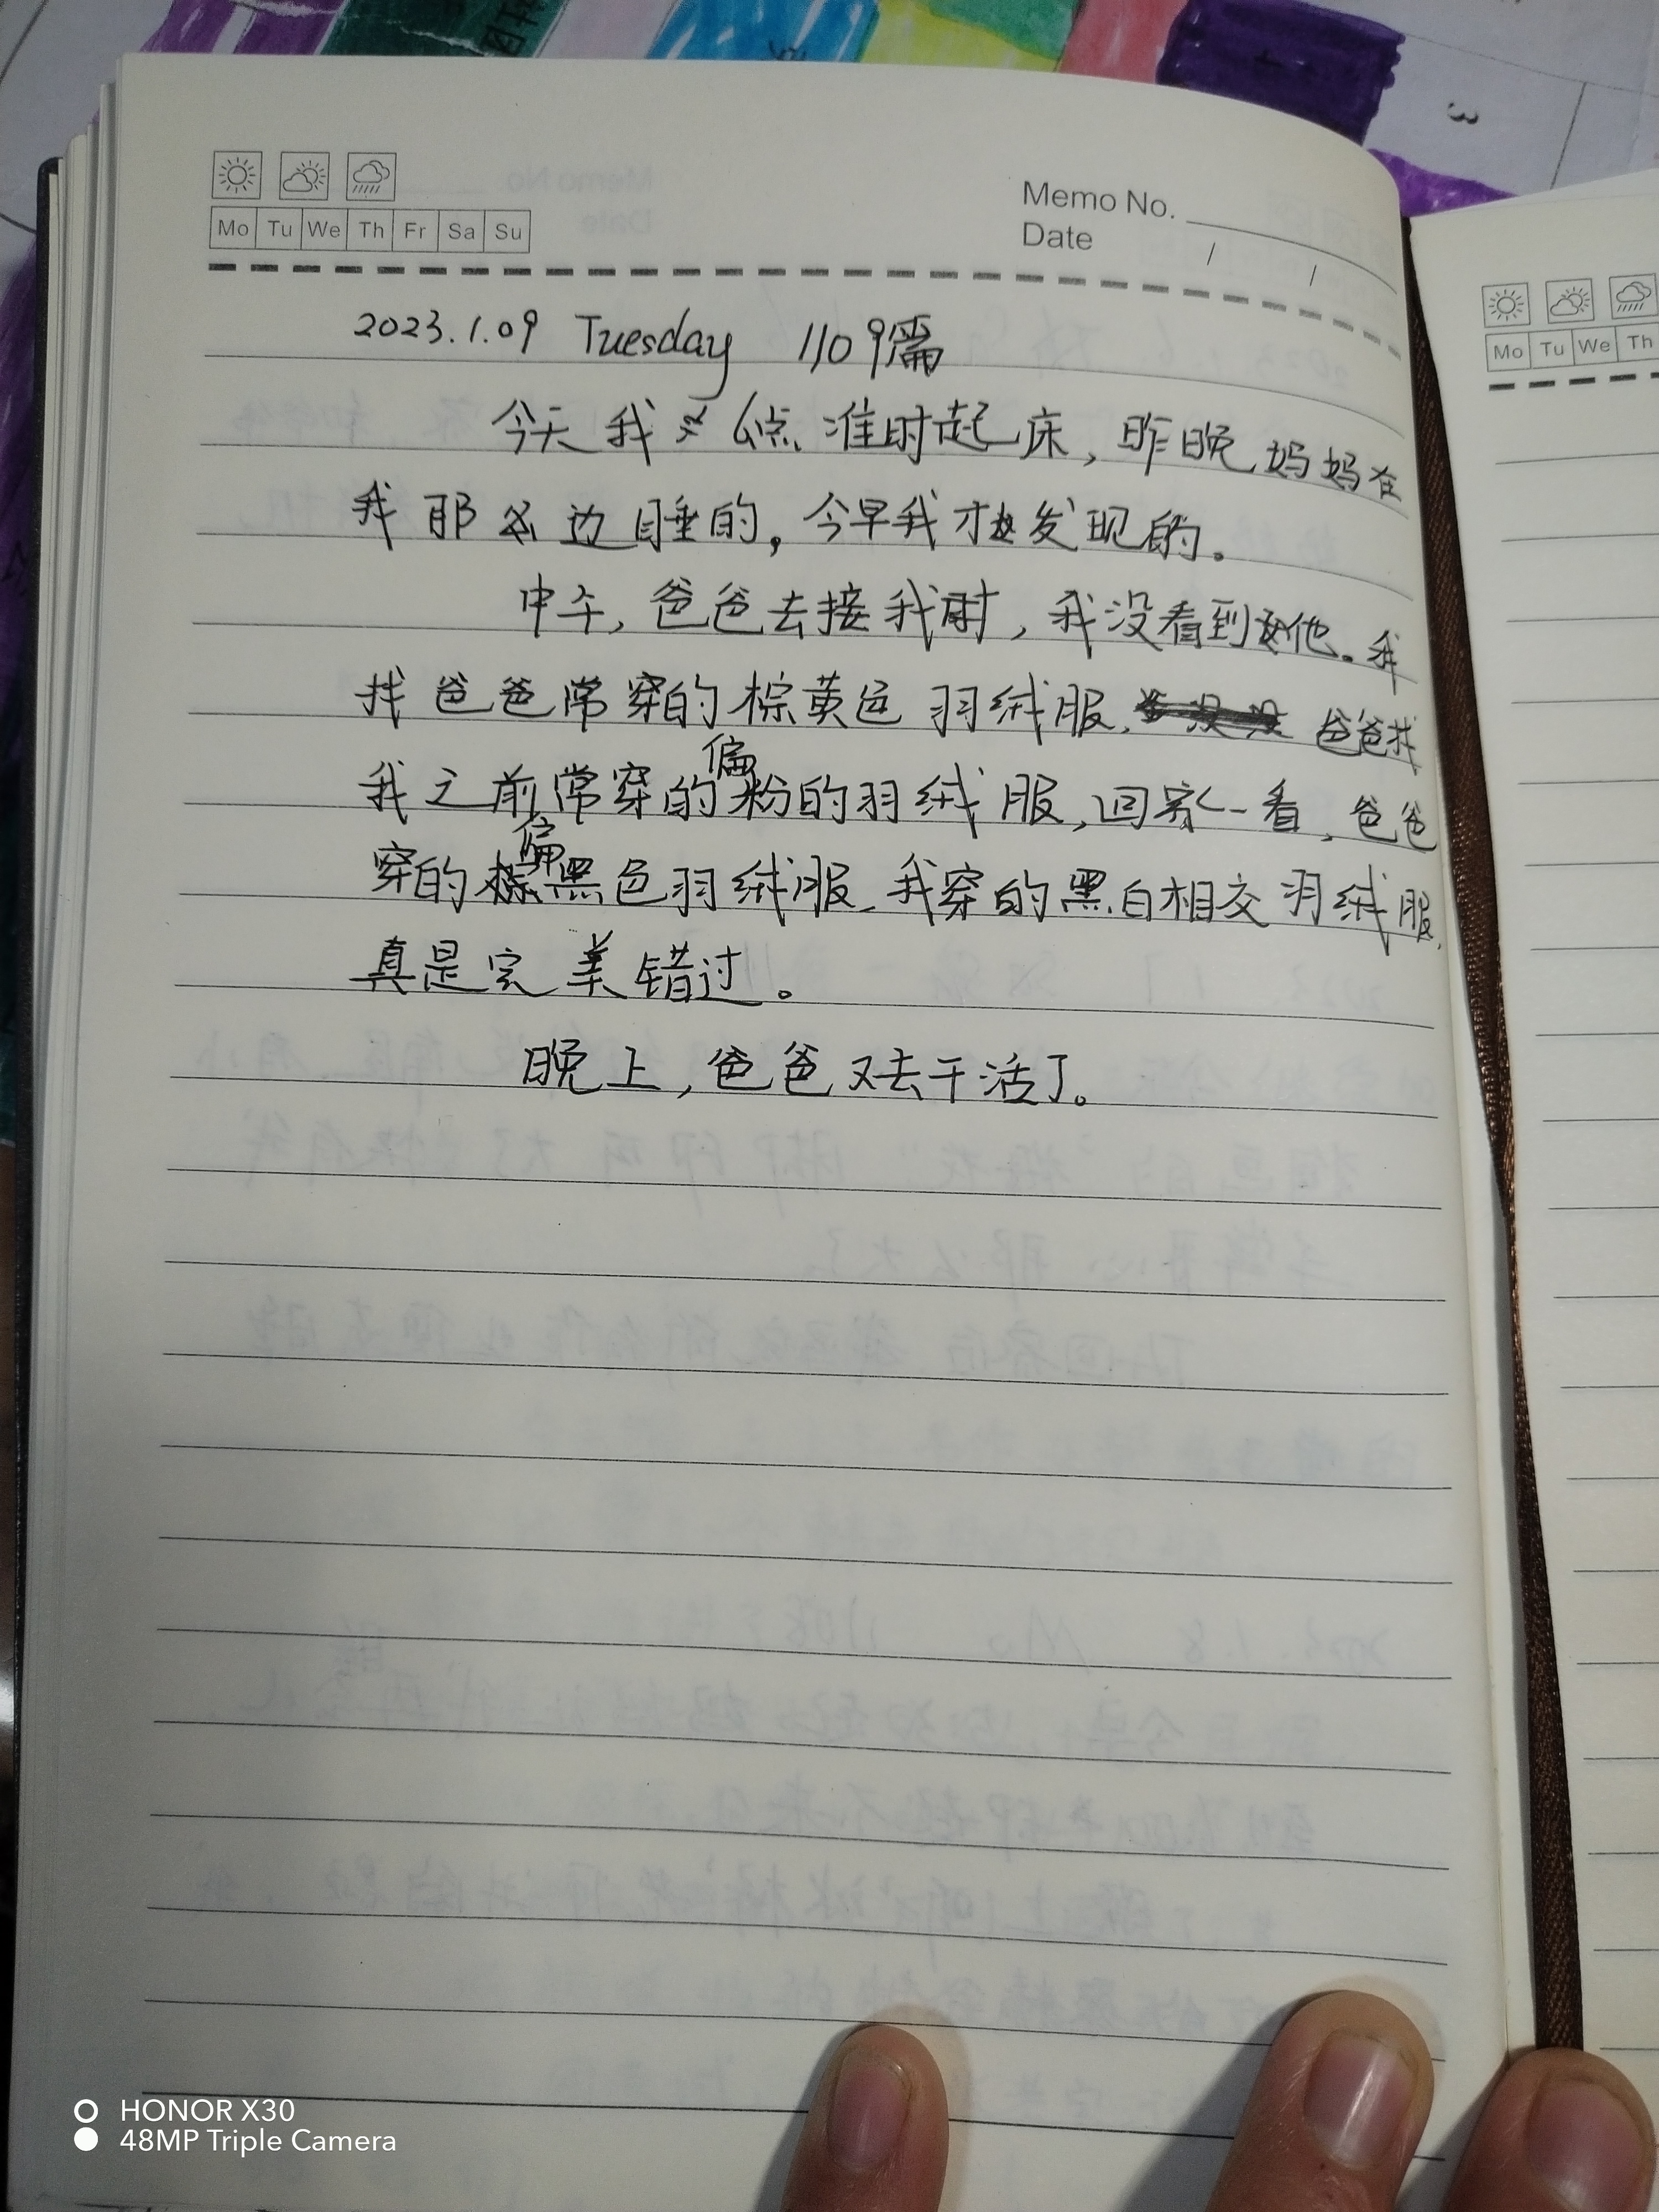 Memo No.
Date / /
Mo Tu We Th Fr Sa Su
2023.1.09 Tuesday 1109篇
今天我6点准时起床,昨晚妈妈在
我那边睡的,今早我才发现的。
中午,爸爸去接我时,我没看到他。我
找爸爸常穿的棕黄色羽绒服,爸爸找
我之前常穿的偏粉的羽绒服,回家一看,爸爸
穿的偏黑色羽绒服,我穿的黑白相交羽绒服,
真是完美错过。
晚上,爸爸又去干活了。
Mo Tu We Th
3
HONOR X30
48MP Triple Camera